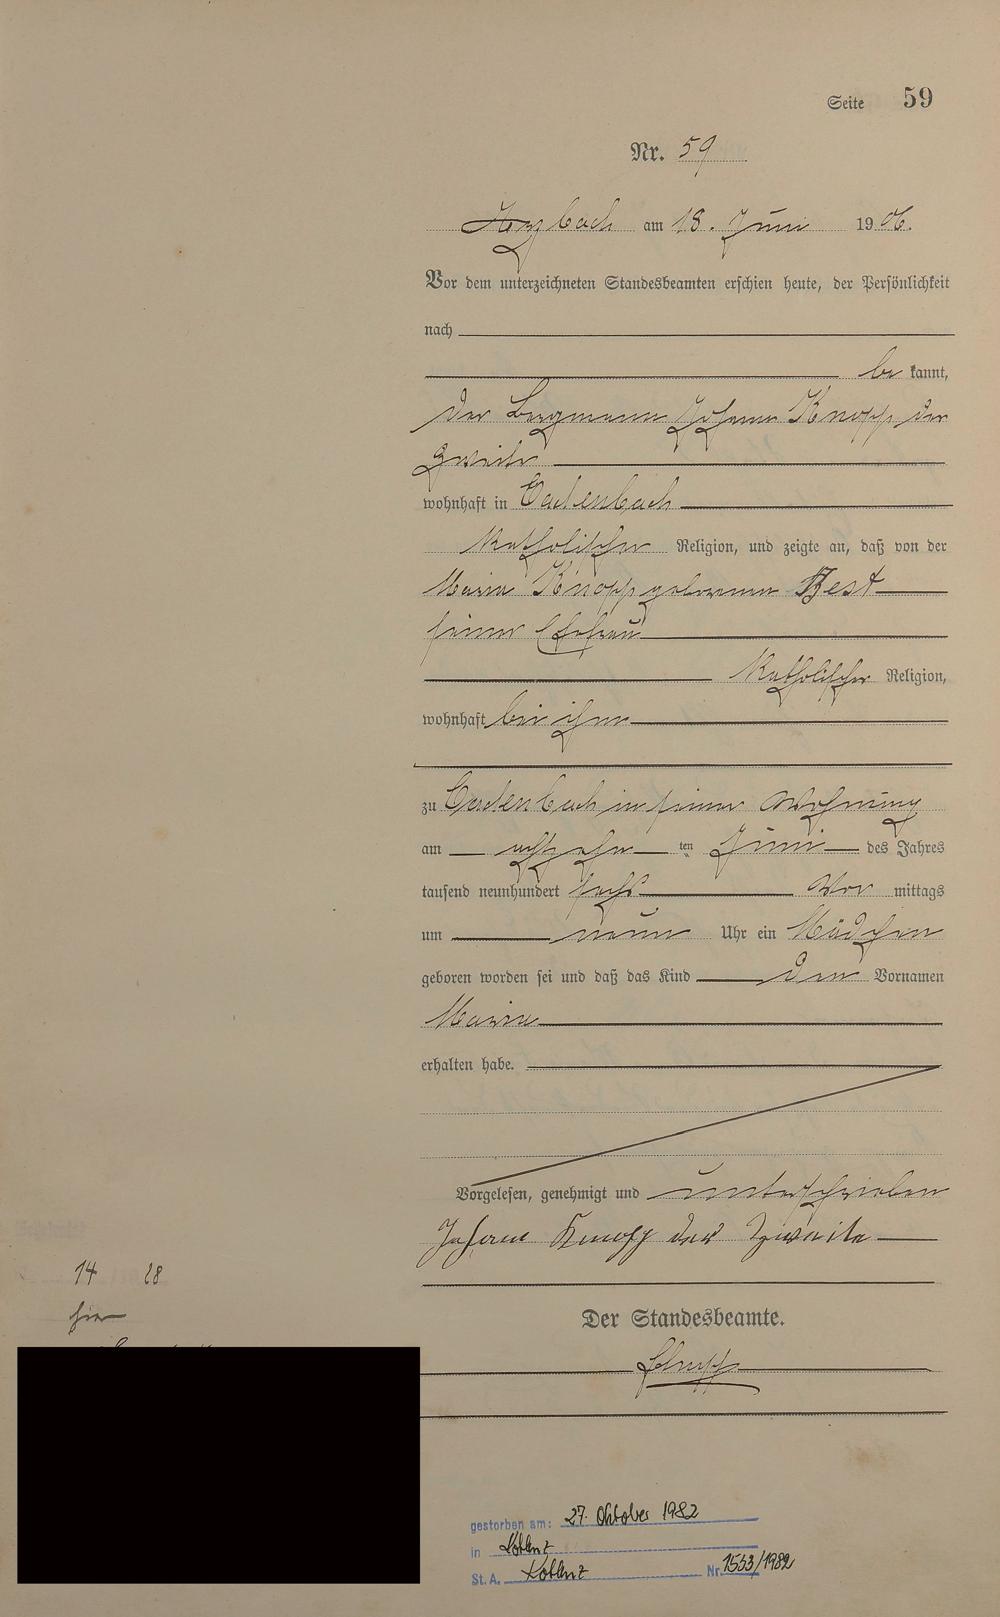 Seite 59
Nr. 59
am 18. Juni 1906.
Vor dem unterzeichneten Standesbeamten erschien heute, der Persönlichkeit
nach
be kannt,
der Bergmann Johann Knopp der
zweite
wohnhaft in Cadenbach
katholischer Religion, und zeigte an, daß von der
Maria Knopp geborenen Best
seiner Ehefrau
katholischer Religion,
wohnhaft bei ihm
zu Cadenbach in seiner Wohnung
am achtzehn ten Juni des Jahres
tausend neunhundert sechs Vor mittags
um neun Uhr ein Mädchen
geboren worden sei und daß das Kind den Vornamen
Maria
erhalten habe.
Vorgelesen, genehmigt und unterschrieben
Johann Knopp der Zweite
Der Standesbeamte.
14 28
gestorben am: 27. Oktober 1982
in Koblenz
St. A. Koblenz Nr. 1553/1982